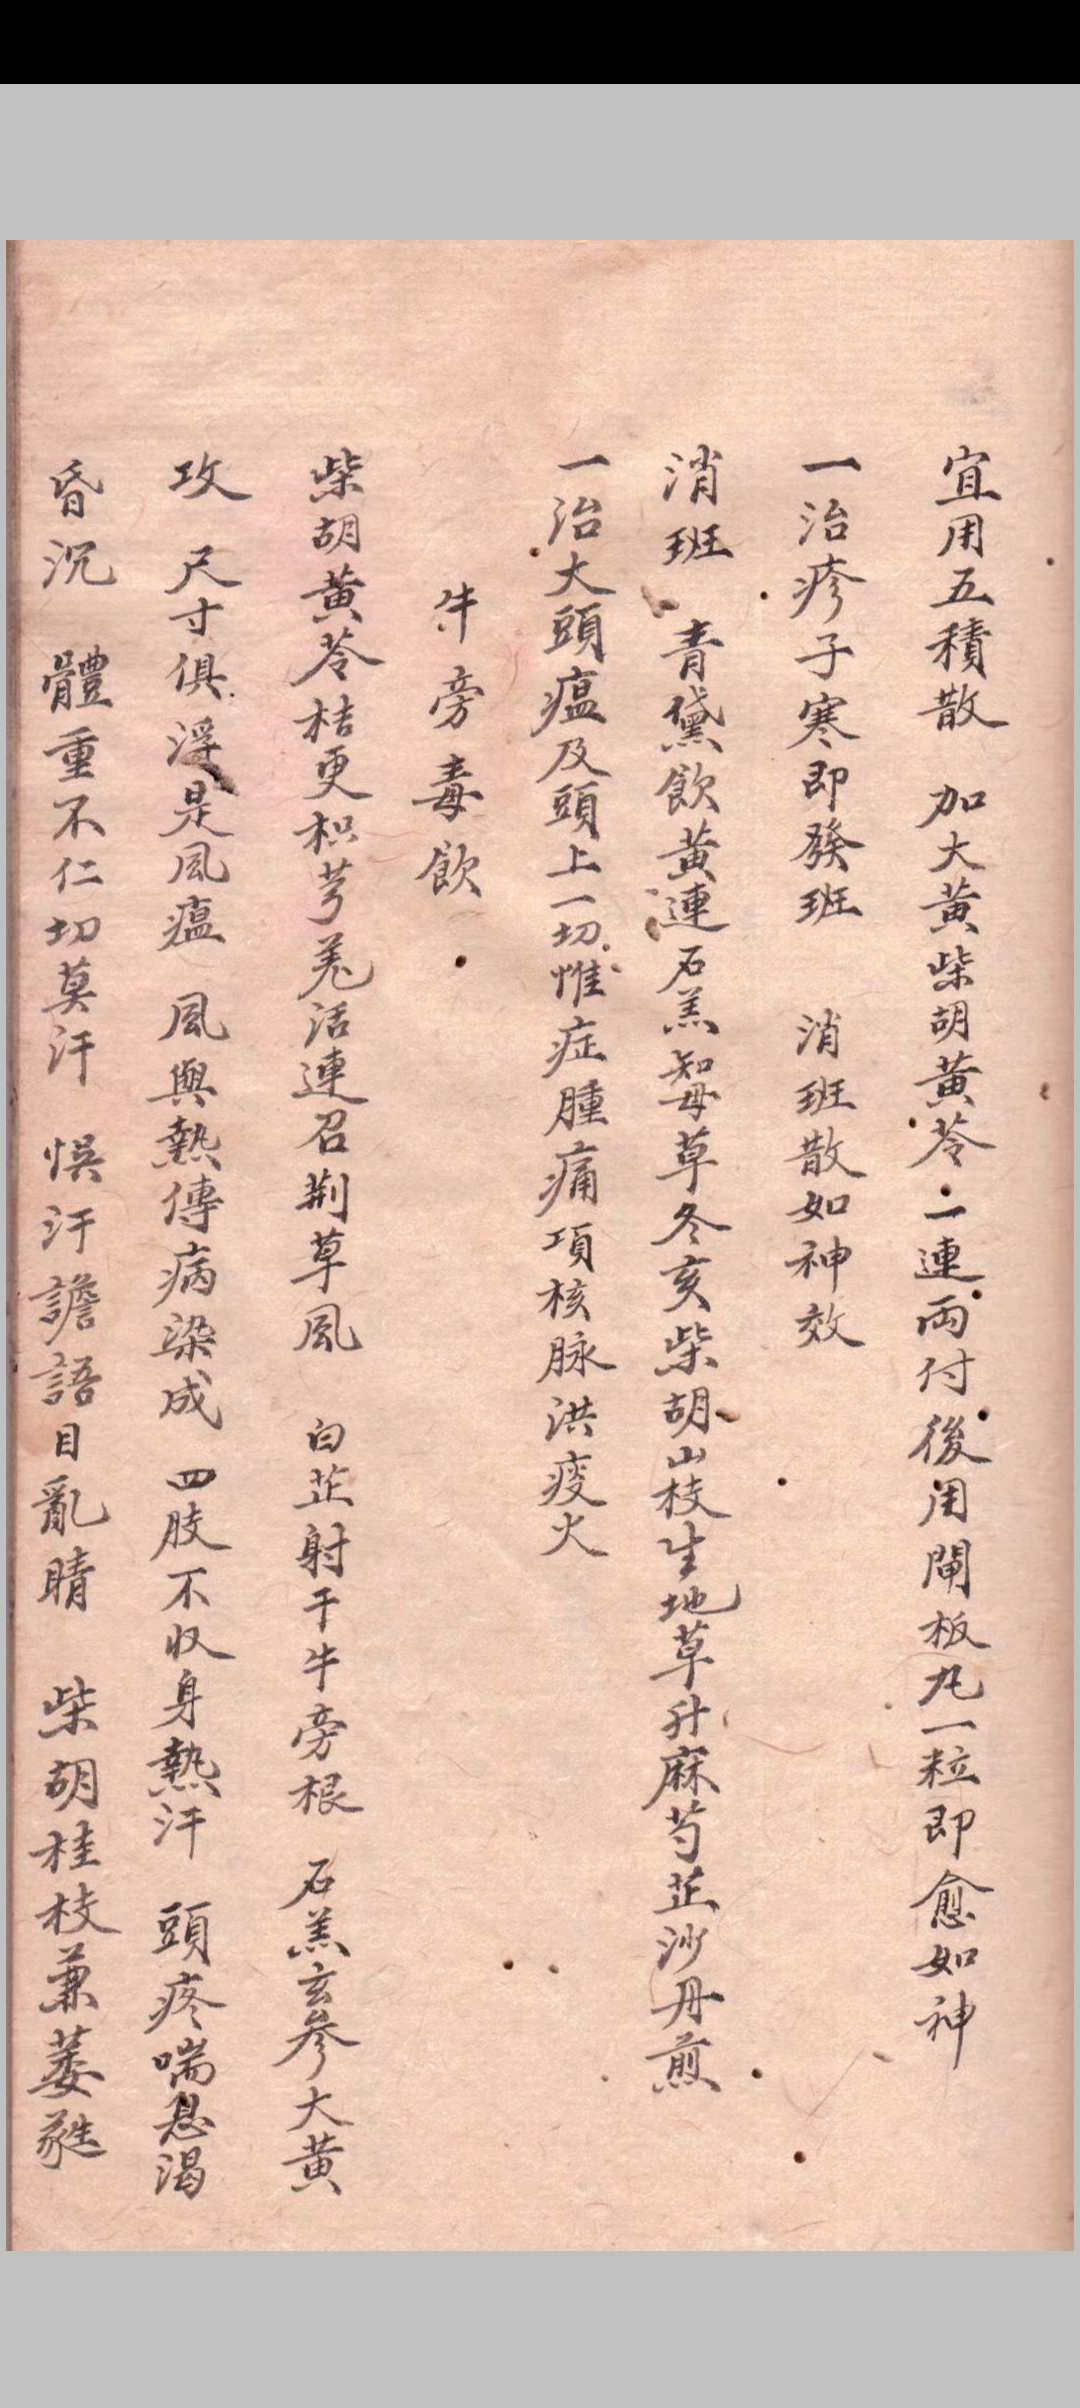 宜用五積散 加大黃柴胡黃苓一連兩付後用閘板丸一粒即愈如神
一治疹子寒即發班 消班散如神效
消班 青黛飲黃連石羔知母草冬亥柴胡山枝生地草升麻芍芷沙丹煎
一治大頭瘟及頭上一切惟症腫痛項核脉洪疫火
牛旁毒飲
柴胡黃苓桔更枳芎羌活連召荆草風 白芷射干牛旁根 石羔玄參大黃
攻 尺寸俱浮是風瘟 風與熱傳病染成 四肢不収身熱汗 頭疼喘息渴
昏沉 體重不仁切莫汗 悞汗譫語目亂睛 柴胡桂枝蒹萎蕤